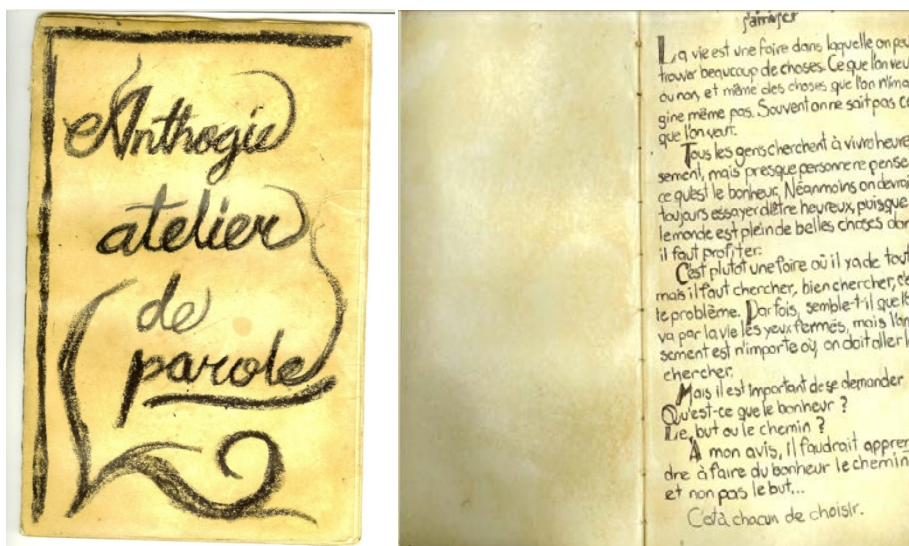 Anthogie
atelier
de
parole
s'amuser
La vie est une foire dans laquelle on peu
trouver beaucoup de choses. Ce que l'on veu
ou non, et même des choses que l'on n'ima
gine même pas. Souvent on ne sait pas ce
que l'on veut.
Tous les gens cherchent à vivre heure
sement, mais presque personne ne pense
ce qu'est le bonheur. Néanmoins on devrai
toujours essayer d'être heureux, puisque
le monde est plein de belles choses don
il faut profiter.
C'est plutôt une foire où il y a de tout
mais il faut chercher, bien chercher, c'e
le problème. Parfois, semble-t-il que l'o
va par la vie les yeux fermés, mais l'am
sement est n'importe où, on doit aller l
chercher.
Mais il est important de se demander
Qu'est-ce que le bonheur ?
Le but ou le chemin ?
A mon avis, il faudrait appren
dre à faire du bonheur le chemin
et non pas le but...
C'est à chacun de choisir.